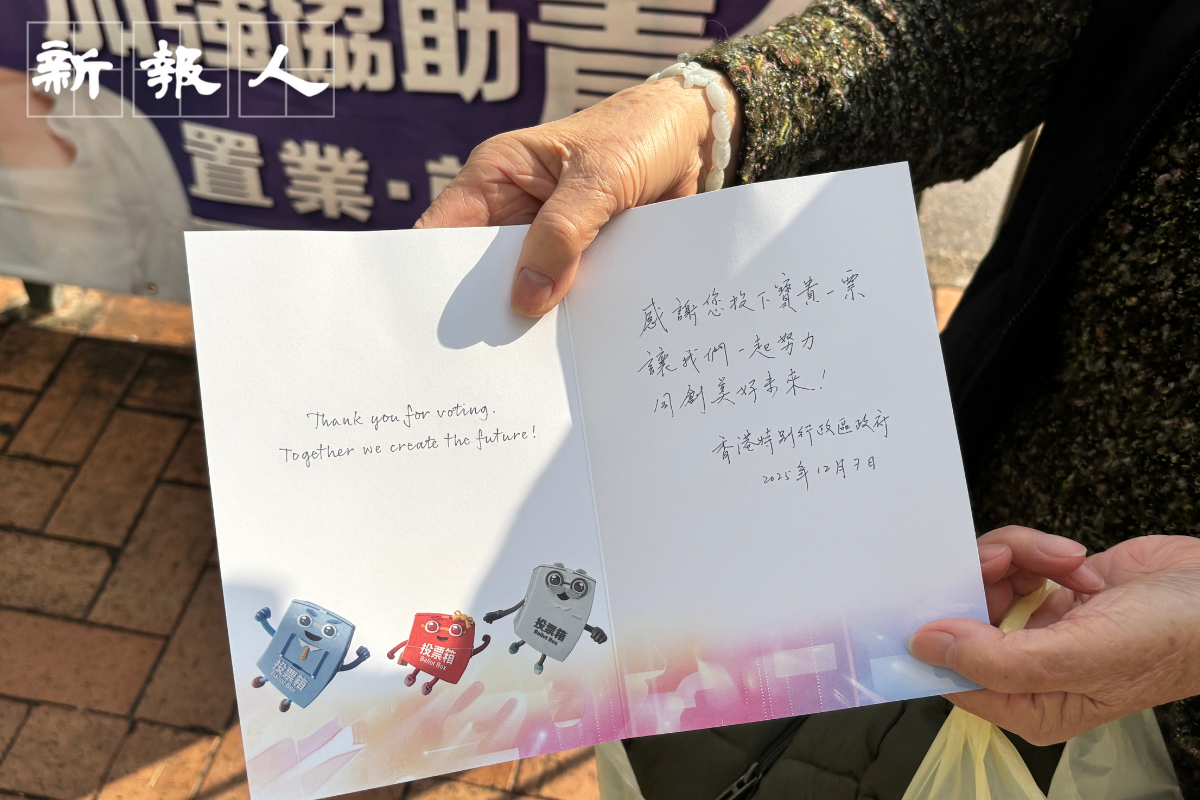 新報人
加強協助青
置業
Thank you for voting.
Together we create the future!
感謝您投下寶貴一票
讓我們一起努力
同創美好未來!
香港特別行政區政府
2025年12月7日
投票箱
Ballot Box
投票箱
Ballot Box
投票箱
Ballot Box